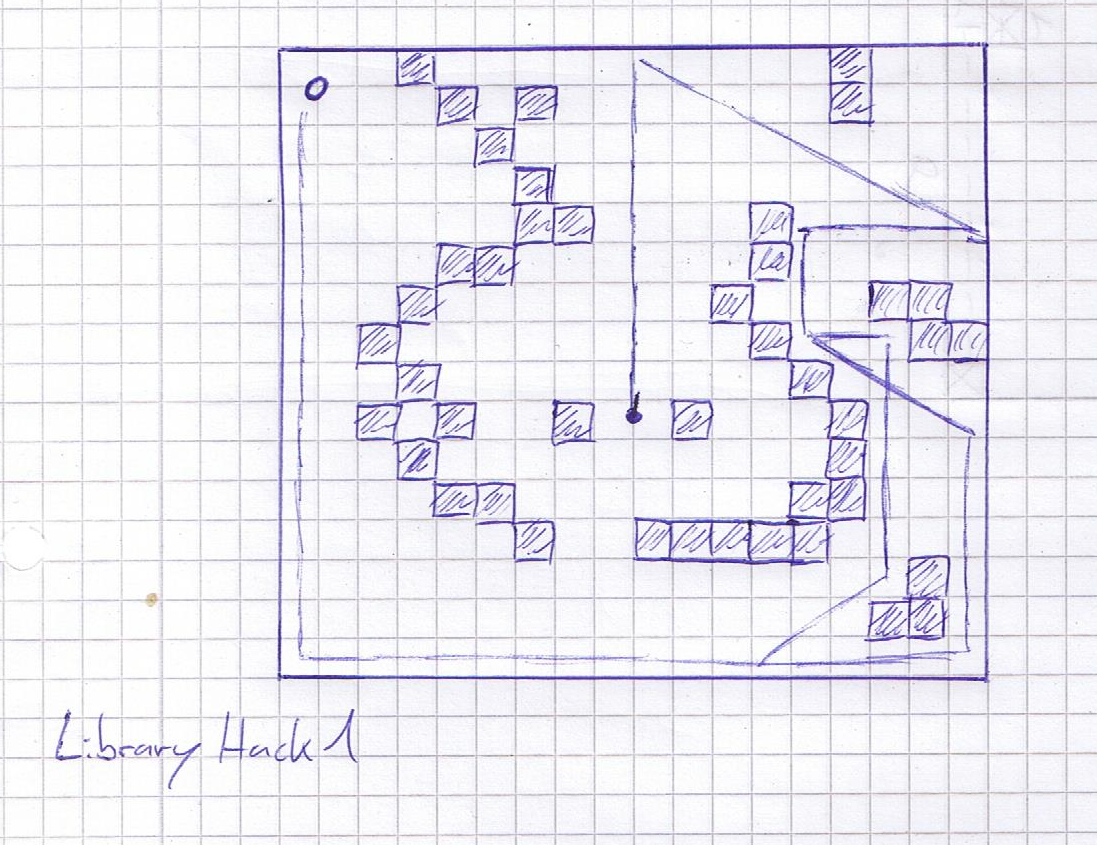 Library Hack 1